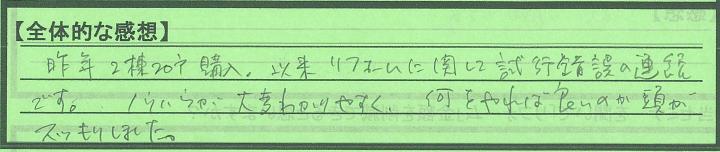 【全体的な感想】
昨年2棟20戸購入。以来リフォームに関して試行錯誤の連続
です。大変わかりやすく、何をやれば良いのか頭が
スッキリしました。